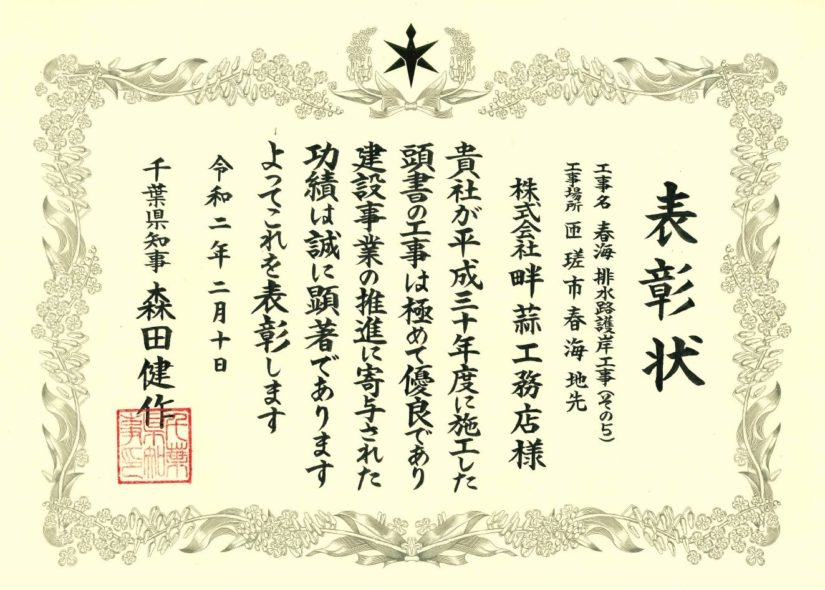 表彰状
工事名 春海 排水路護岸工事(その5)
工事場所 匝瑳市春海地先
株式会社 畔蒜工務店様
貴社が平成三十年度に施工した
頭書の工事は極めて優良であり
建設事業の推進に寄与された
功績は誠に顕著であります
よってこれを表彰します
令和二年二月十日
千葉県知事 森田健作
千葉県知事之印